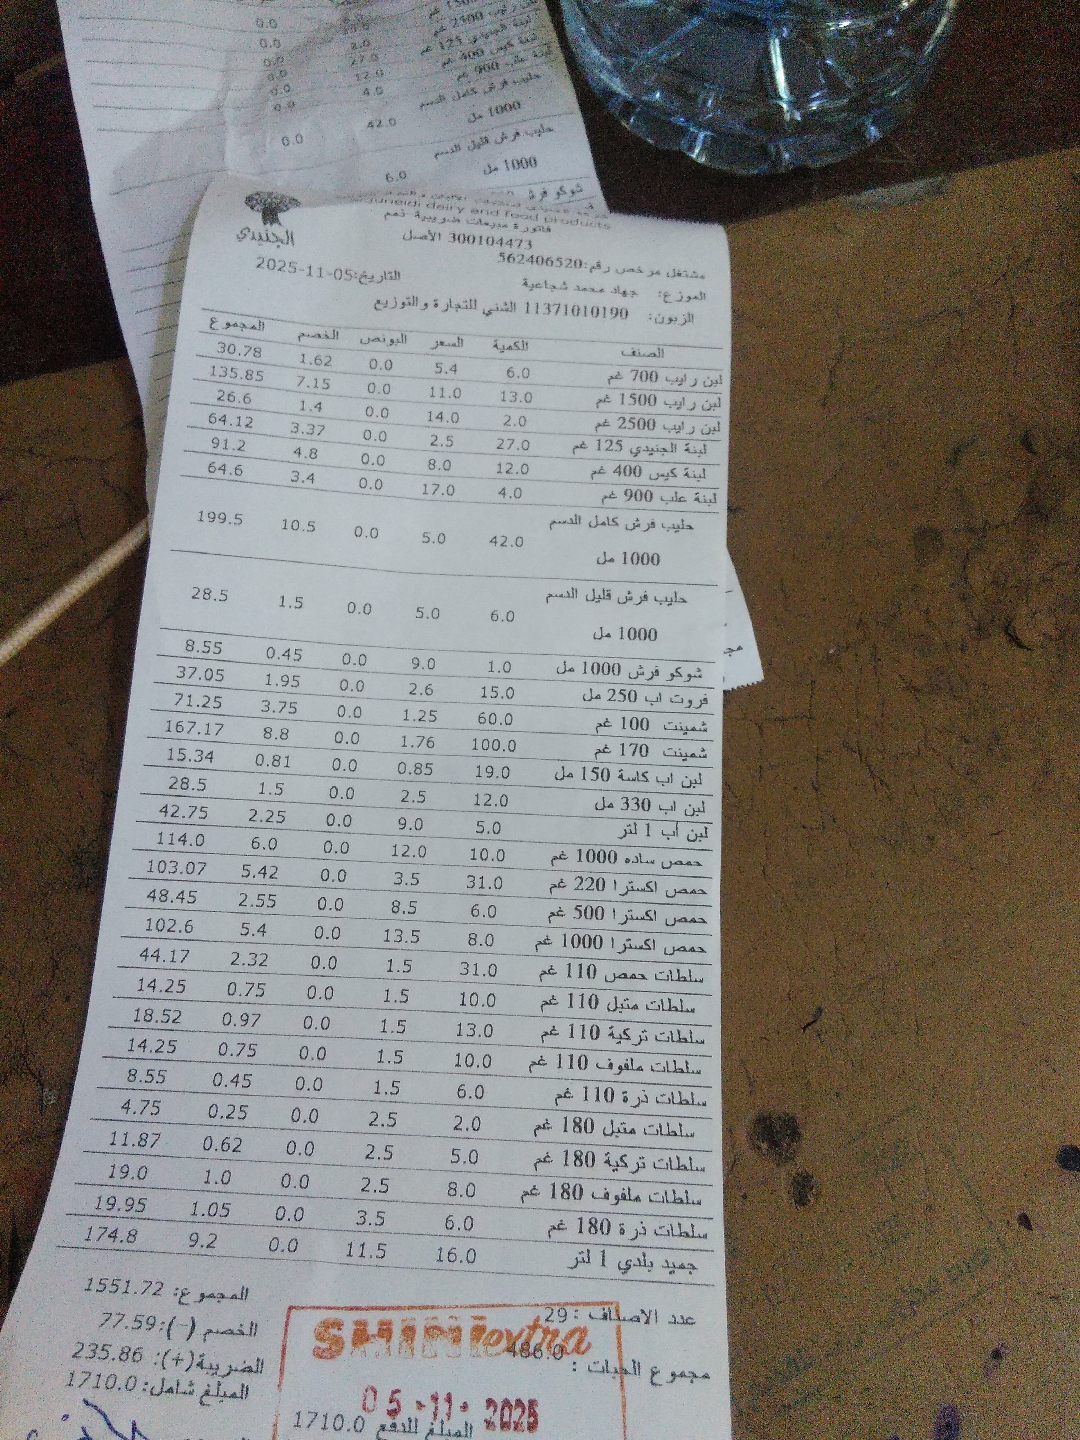 0.0
لبن رايب 2500 غم
0.0
125 غم
27.0
0.0
لبنة كيس 400 غم
12.0
0.0
لبنة علب 900 غم
4.0
0.0
حليب فرش كامل الدسم
1000 مل
42.0
0.0
حليب فرش قليل الدسم
1000 مل
6.0
شوكو فرش
juneidi dairy and food products
الجنيدي
فاتورة مبيعات ضريبية-نعم
300104473 الأصل
مشتغل مرخص رقم:562406520
الموزع: جهاد محمد شجاعية
التاريخ:2025-11-05
الزبون: 11371010190 الشني للتجارة والتوزيع
الصنف الكمية السعر البونص الخصم المجموع
لبن رايب 700 غم 6.0 5.4 0.0 1.62 30.78
لبن رايب 1500 غم 13.0 11.0 0.0 7.15 135.85
لبن رايب 2500 غم 2.0 14.0 0.0 1.4 26.6
لبنة الجنيدي 125 غم 27.0 2.5 0.0 3.37 64.12
لبنة كيس 400 غم 12.0 8.0 0.0 4.8 91.2
لبنة علب 900 غم 4.0 17.0 0.0 3.4 64.6
حليب فرش كامل الدسم
1000 مل 42.0 5.0 0.0 10.5 199.5
حليب فرش قليل الدسم
1000 مل 6.0 5.0 0.0 1.5 28.5
شوكو فرش 1000 مل 1.0 9.0 0.0 0.45 8.55
فروت اب 250 مل 15.0 2.6 0.0 1.95 37.05
شمينت 100 غم 60.0 1.25 0.0 3.75 71.25
شمينت 170 غم 100.0 1.76 0.0 8.8 167.17
لبن اب كاسة 150 مل 19.0 0.85 0.0 0.81 15.34
لبن اب 330 مل 12.0 2.5 0.0 1.5 28.5
لبن اب 1 لتر 5.0 9.0 0.0 2.25 42.75
حمص ساده 1000 غم 10.0 12.0 0.0 6.0 114.0
حمص اكسترا 220 غم 31.0 3.5 0.0 5.42 103.07
حمص اكسترا 500 غم 6.0 8.5 0.0 2.55 48.45
حمص اكسترا 1000 غم 8.0 13.5 0.0 5.4 102.6
سلطات حمص 110 غم 31.0 1.5 0.0 2.32 44.17
سلطات متبل 110 غم 10.0 1.5 0.0 0.75 14.25
سلطات تركية 110 غم 13.0 1.5 0.0 0.97 18.52
سلطات ملفوف 110 غم 10.0 1.5 0.0 0.75 14.25
سلطات ذرة 110 غم 6.0 1.5 0.0 0.45 8.55
سلطات متبل 180 غم 2.0 2.5 0.0 0.25 4.75
سلطات تركية 180 غم 5.0 2.5 0.0 0.62 11.87
سلطات ملفوف 180 غم 8.0 2.5 0.0 1.0 19.0
سلطات ذرة 180 غم 6.0 3.5 0.0 1.05 19.95
جميد بلدي 1 لتر 16.0 11.5 0.0 9.2 174.8
عدد الاصناف : 29
المجموع: 1551.72
مجموع الحبات : 486.0
الخصم (-): 77.59
الضريبة(+): 235.86
المبلغ شامل: 1710.0
SHINI extra
05-11-2025
المبلغ للدفع 1710.0